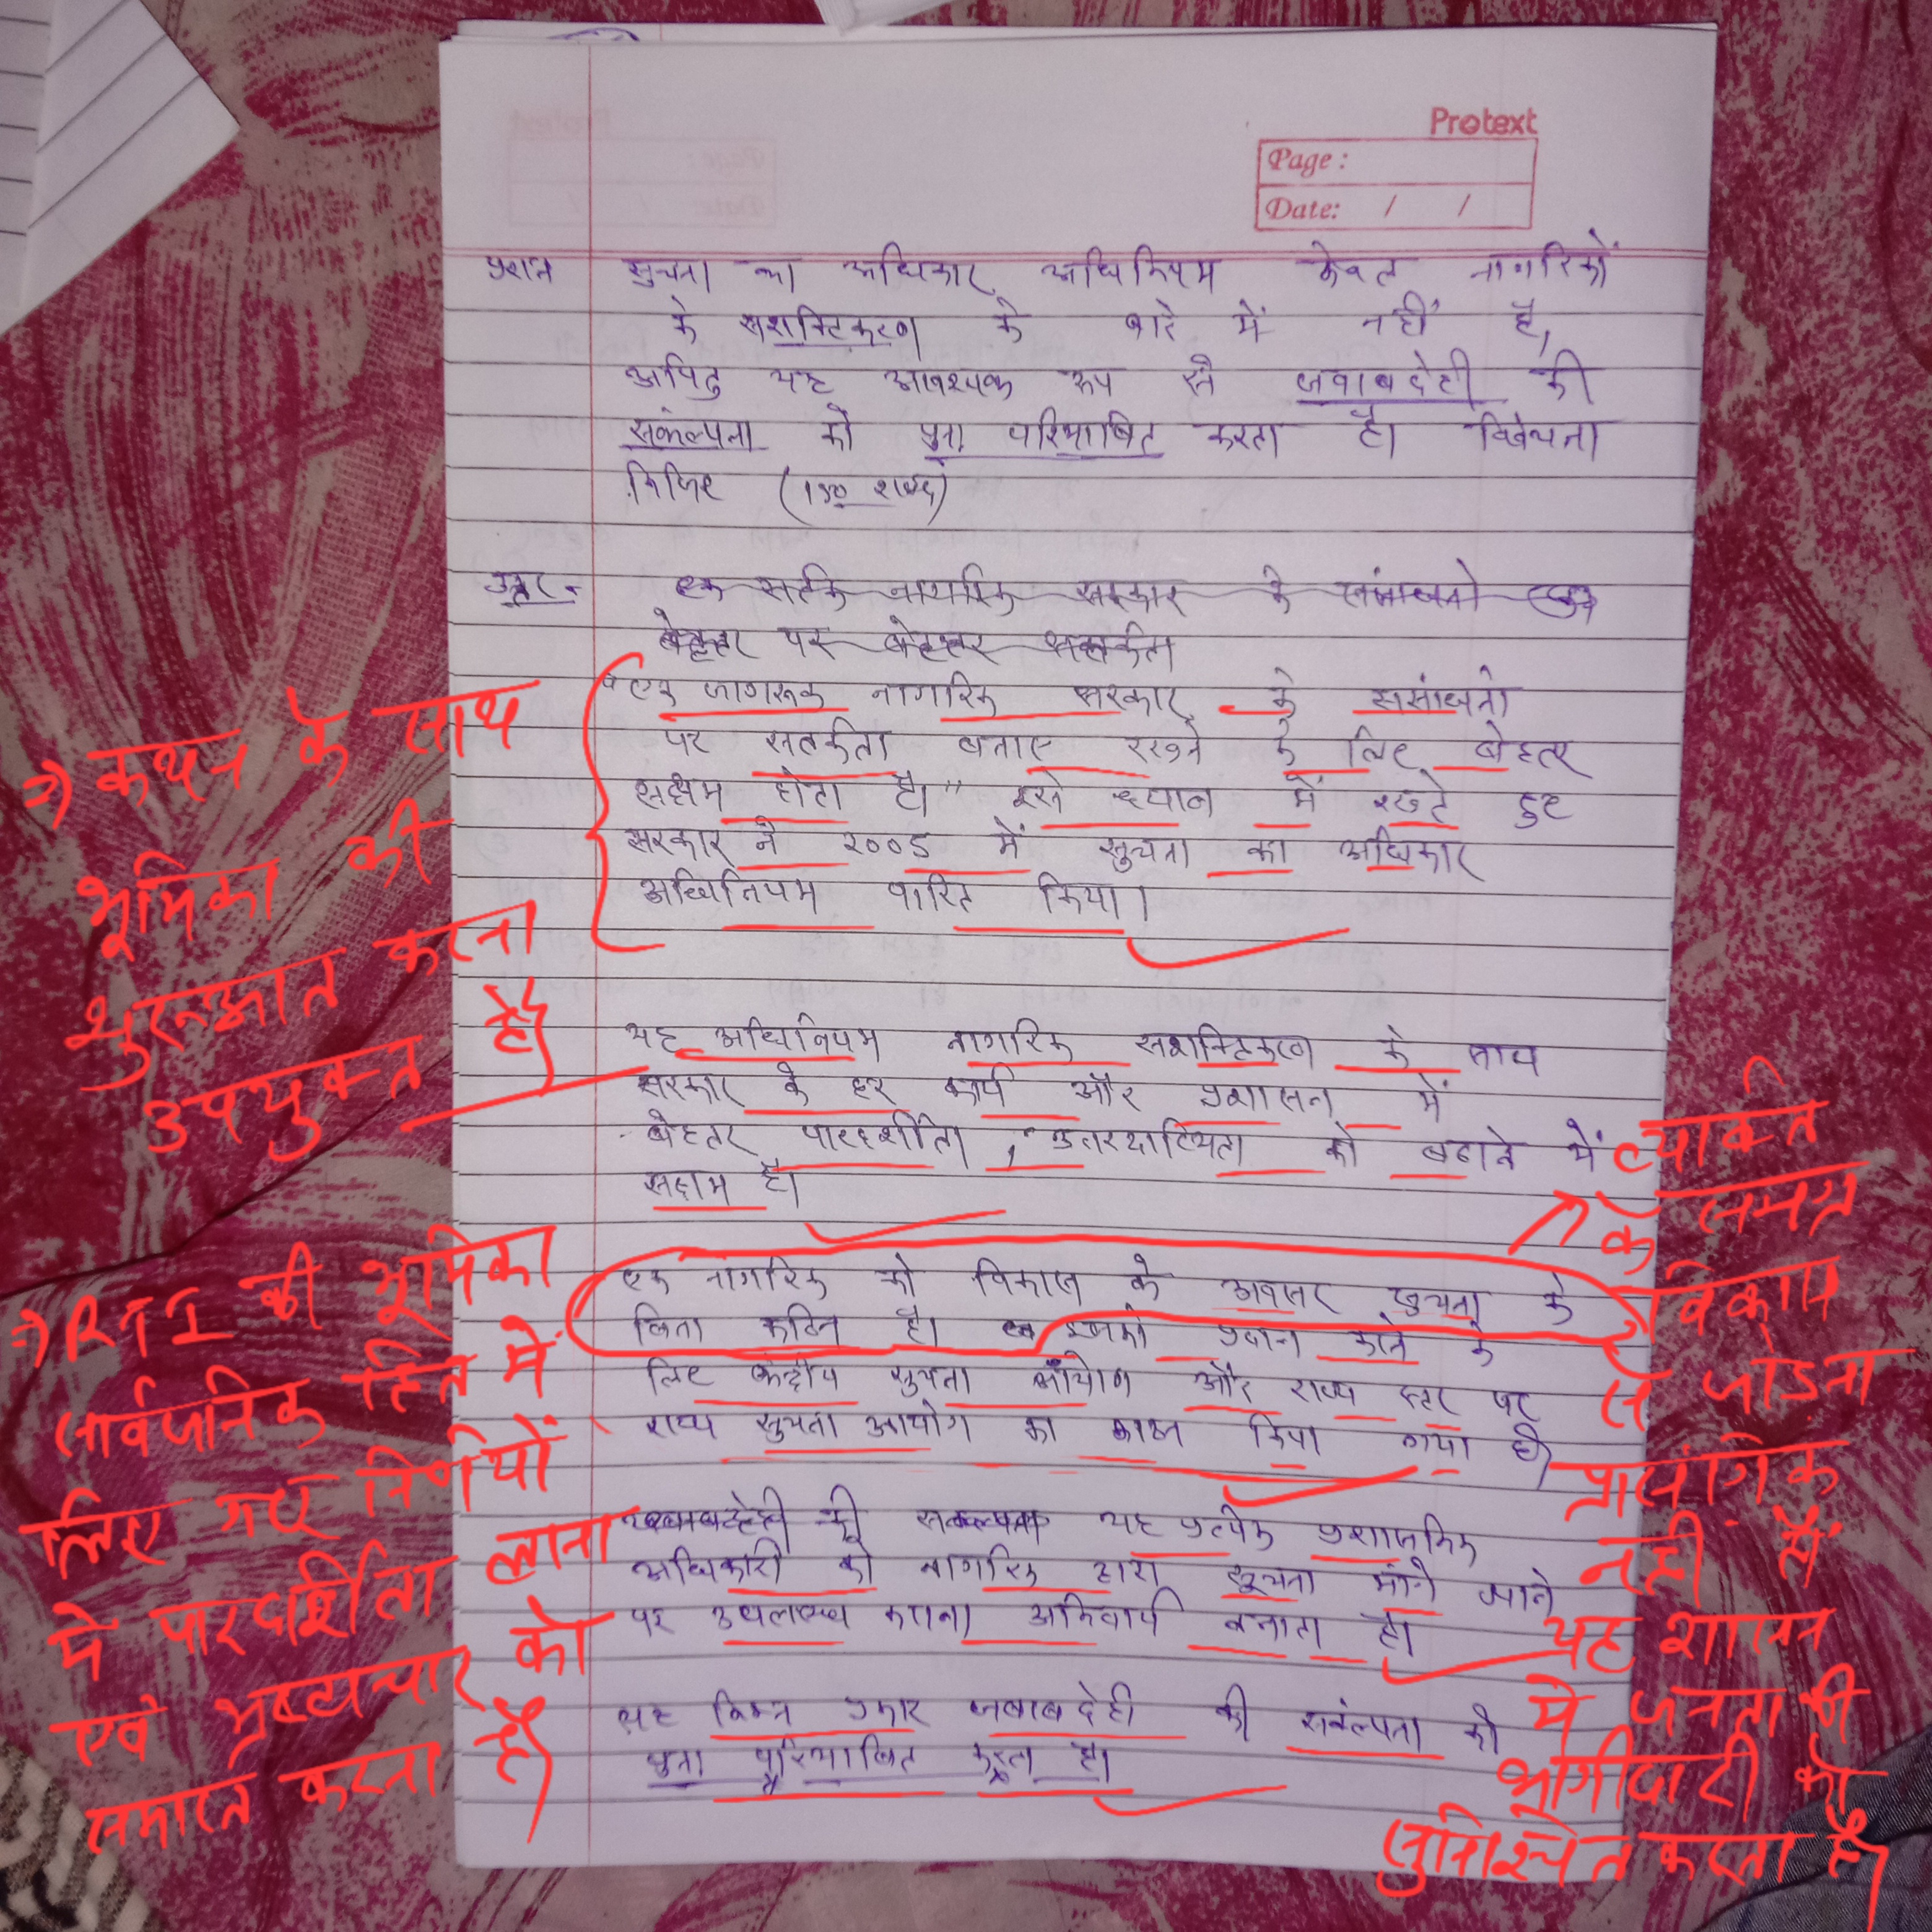 Protext
Page :
Date: / /
प्रश्न सुचना का अधिकार अधिनियम केवल नागरिकों
के सशक्तिकरण के बारे में नहीं है,
अपितु यह आवश्यक रूप से जवाबदेही की
संकल्पना को पुनः परिभाषित करता है। विवेचना
किजिए (150 शब्द)
उत्तर - एक सर्तक नागरिक सरकार के संसाधनो
बेहतर पर बेहतर सतर्कता
"एक जागरूक नागरिक सरकार के ससांधनो
पर सतर्कता बनाए रखने के लिए बेहतर
सक्षम होता है।" इसे ध्यान में रखते हुए
सरकार ने 2005 में सुचना का अधिकार
अधिनियम पारित किया।
⇒ कथन के साथ
भूमिका की
शुरूआत करना
उपयुक्त है।
यह अधिनियम नागरिक सशक्टिकरण के साथ
सरकार के हर कार्य और प्रशासन में
बेहतर पारदर्शीता, उत्तरदायित्वता को बढाने में
सक्षम है।
एक नागरिक को विकास के अवसर सुचना के
बिना कठिन है। इसको प्रदान करने के
लिए केंद्रीय सुचना आयोग और राज्य स्तर पर
राज्य सुचना आयोग का गठन किया गया है।
जवाबदेही की सकंल्पना यह प्रत्येक प्रशासनिक
अधिकारी को नागरिक द्वारा सूचना मांगे जाने
पर उपलब्ध कराना अनिवार्य बनाता है।
यह निम्न प्रकार जवाबदेही की सकंल्पना को
पुनः परिभाषित करता है।
⇒ RTI की भूमिका
सार्वजनिक हित में
लिए गए निर्णयों
मे पारदर्शिता लाना
एवं भ्रष्टाचार को
समाप्त करना है।
व्यक्ति
के समग्र
विकास
से जोड़ना
प्रासंगिक
नही है
यह शासन
मे जनता की
भागीदारी को
सुनिश्चित करता है।